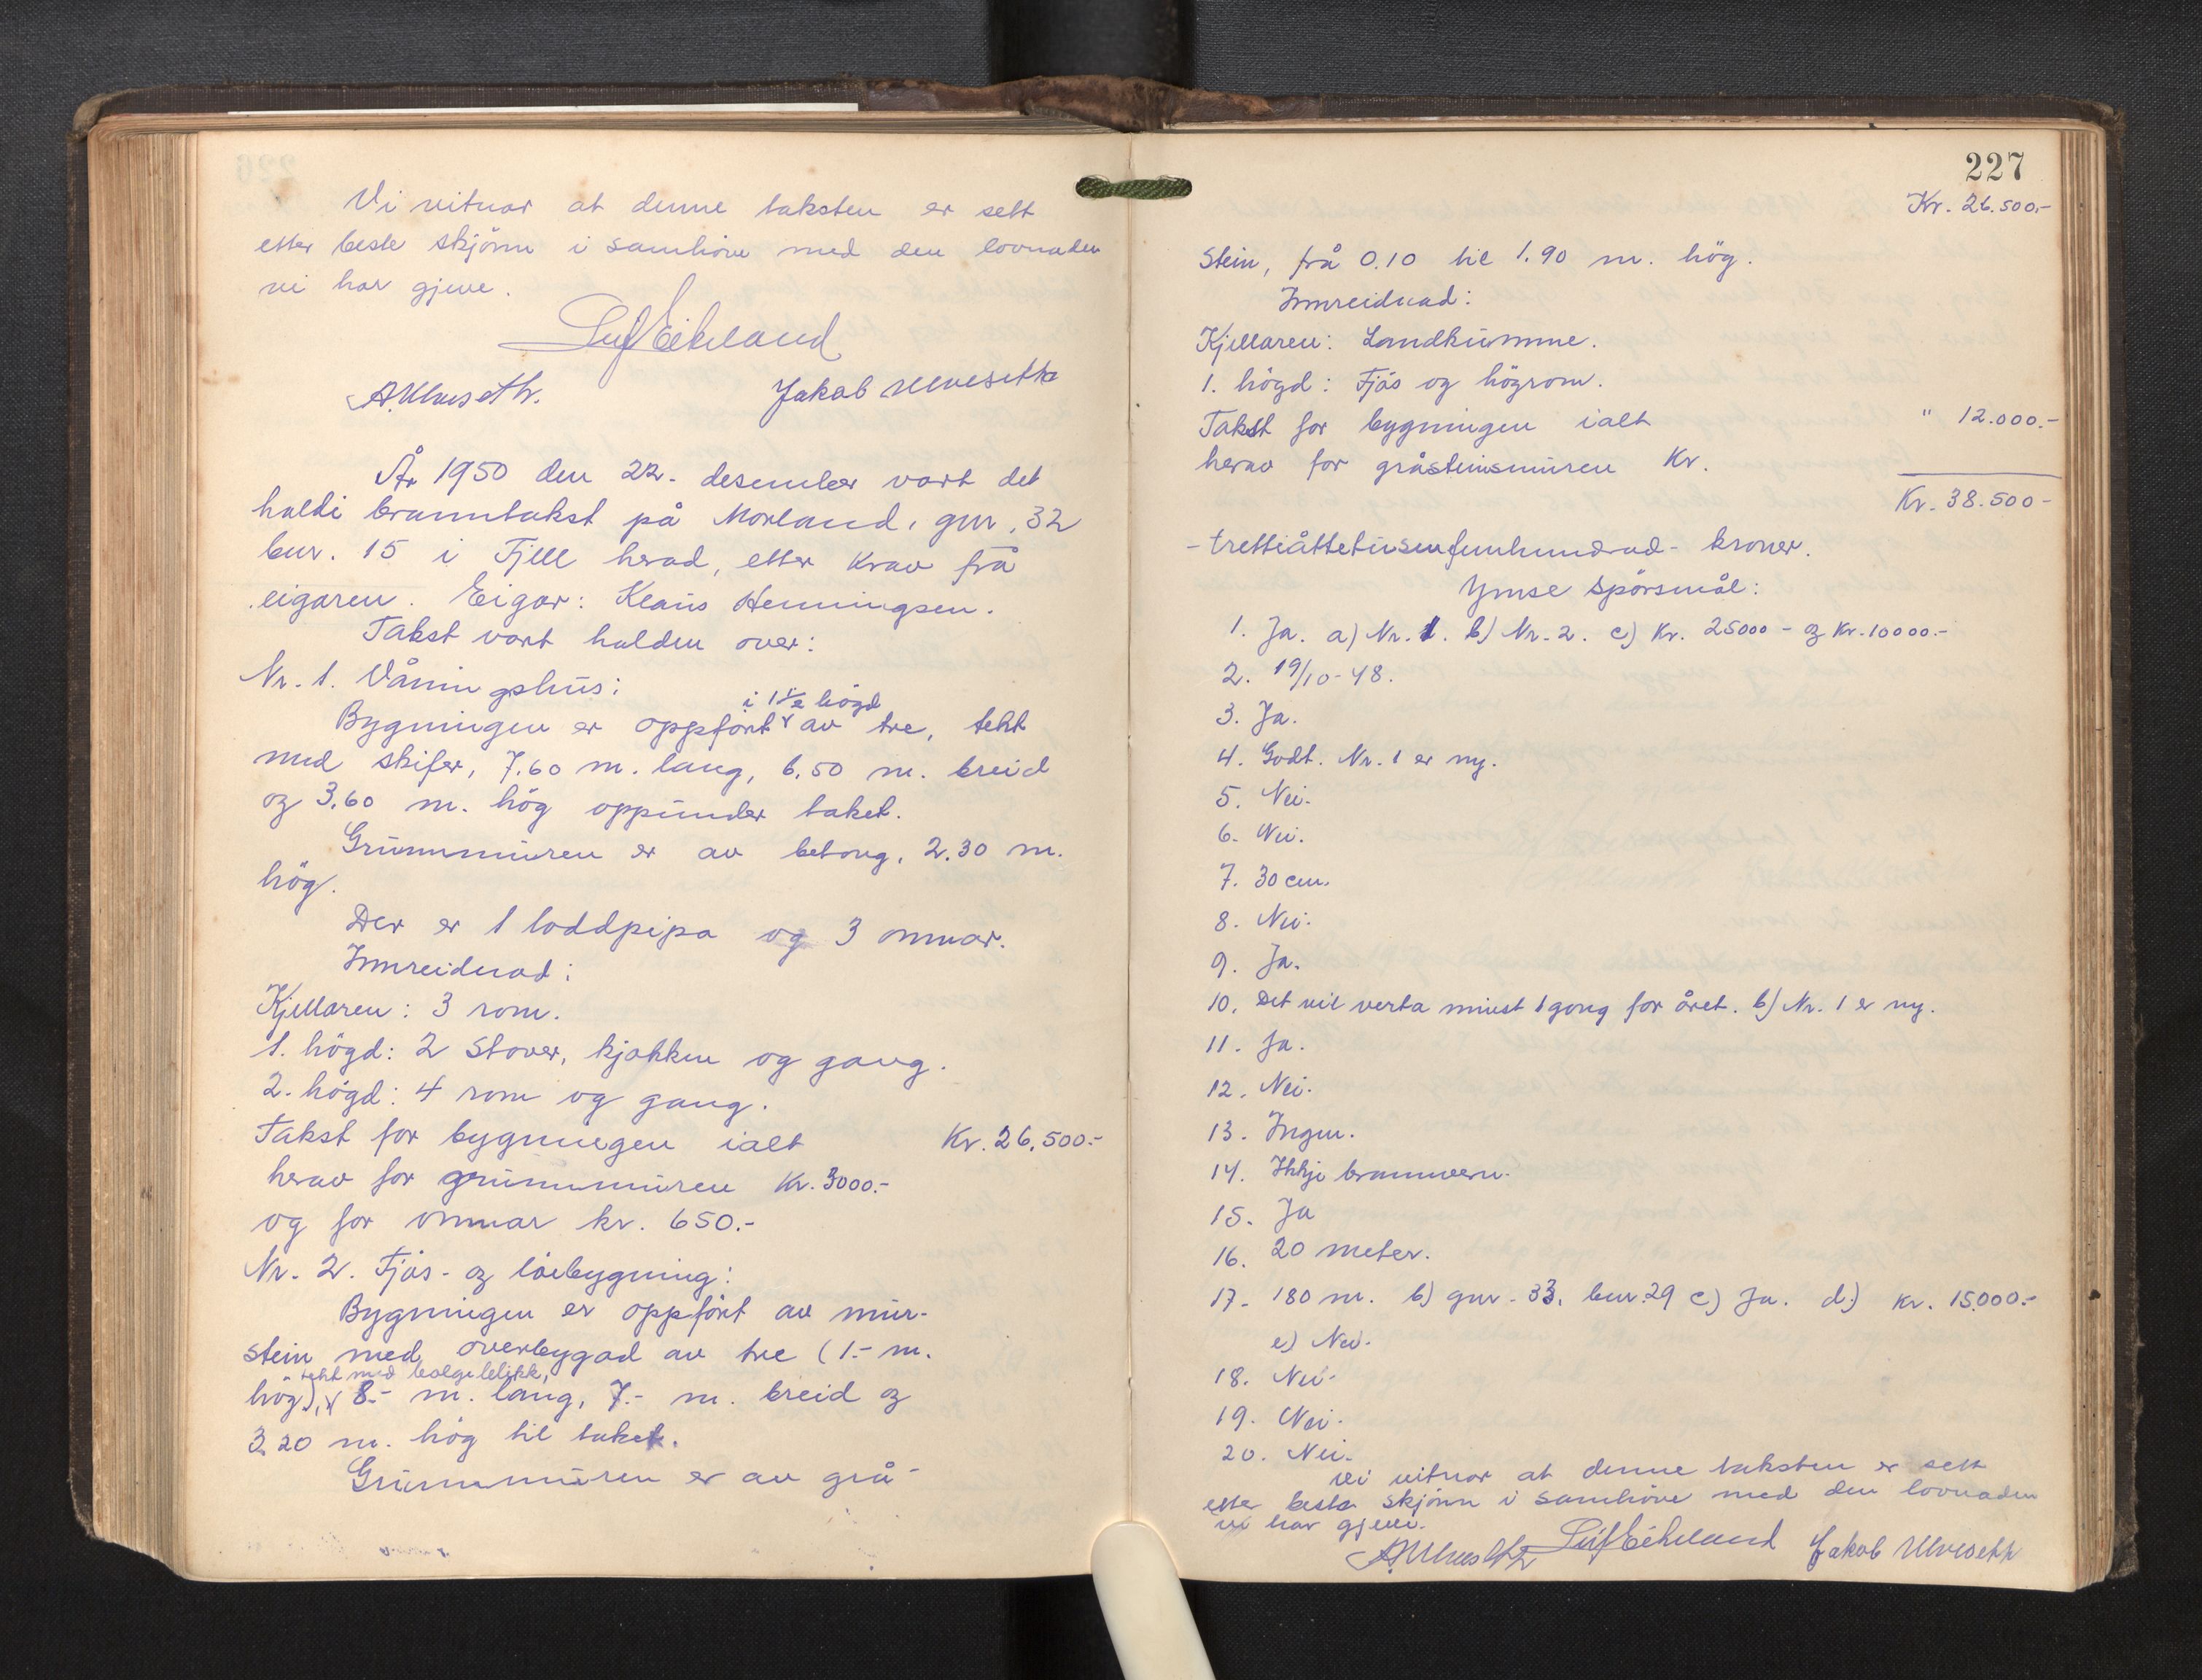 Vi vitnar at denne taksten er sett
etter beste skjönn i samhöve med den lovnaden
vi har gjeve.
Leif Eikeland
A. Ulveseth. Jakob Ulvesett
År 1950 den 22. desember vart det
haldi branntakst på Morland, gnr. 32
bnr. 15 i Fjell herad, etter krav frå
eigaren. Eigar: Klaus Henningsen.
Takst vart halden over:
Nr. 1. Våningshus:
i 1½ högd
Bygningen er oppfört av tre, tekt
med skifer, 7.60 m. lang, 6.50 m. breid
og 3.60 m. hög oppunder taket.
Grunnmuren er av betong, 2.30 m.
hög.
Der er 1 loddpipa og 3 omnar.
Innreidnad:
Kjellaren: 3 rom.
1. högd: 2 stover, kjökken og gang.
2. högd: 4 rom og gang.
Takst for bygningen ialt Kr. 26.500.-
herav for grunnmuren Kr. 3000.-
og for omnar kr. 650.-
Nr. 2. Fjös- og löebygning:
Bygningen er oppfört av mur-
stein med overbygad av tre (1.- m.
tekt med bølgeblikk,
hög), 8.- m. lang, 7.- m. breid og
3.20 m. hög til taket.
Grunnmuren er av grå-
227
Kr. 26.500.-
stein, frå 0.10 til 1.90 m. hög.
Innreidnad:
Kjellaren: Landkumme.
1. högd: Fjös og högrom.
Takst for bygningen ialt " 12.000.-
herav for gråsteinsmuren Kr.
Kr. 38.500-
- trettiåttetusenfemhundrad - kroner.
Ymse spörsmål:
1. Ja. a) Nr. 1. b) Nr. 2. c) Kr. 25000 - og Kr. 10000.-
2. 19/10-48.
3. Ja.
4. Godt. Nr. 1 er ny.
5. Nei.
6. Nei.
7. 30 cm.
8. Nei.
9. Ja.
10. Det vil verta minst 1 gong for året. b) Nr. 1 er ny.
11. Ja.
12. Nei.
13. Ingen.
14. Ikkje brannvern.
15. Ja
16. 20 meter.
17. 180 m. b) gnr. 33, bnr. 29 c) Ja. d.) kr. 15.000.-
e) Nei.
18. Nei.
19. Nei.
20. Nei.
Vi vitnar at denne taksten er sett
etter beste skjönn i samhöve med den lovnaden
vi har gjeve.
A. Ulveseth Leif Eikeland Jakob Ulvesett